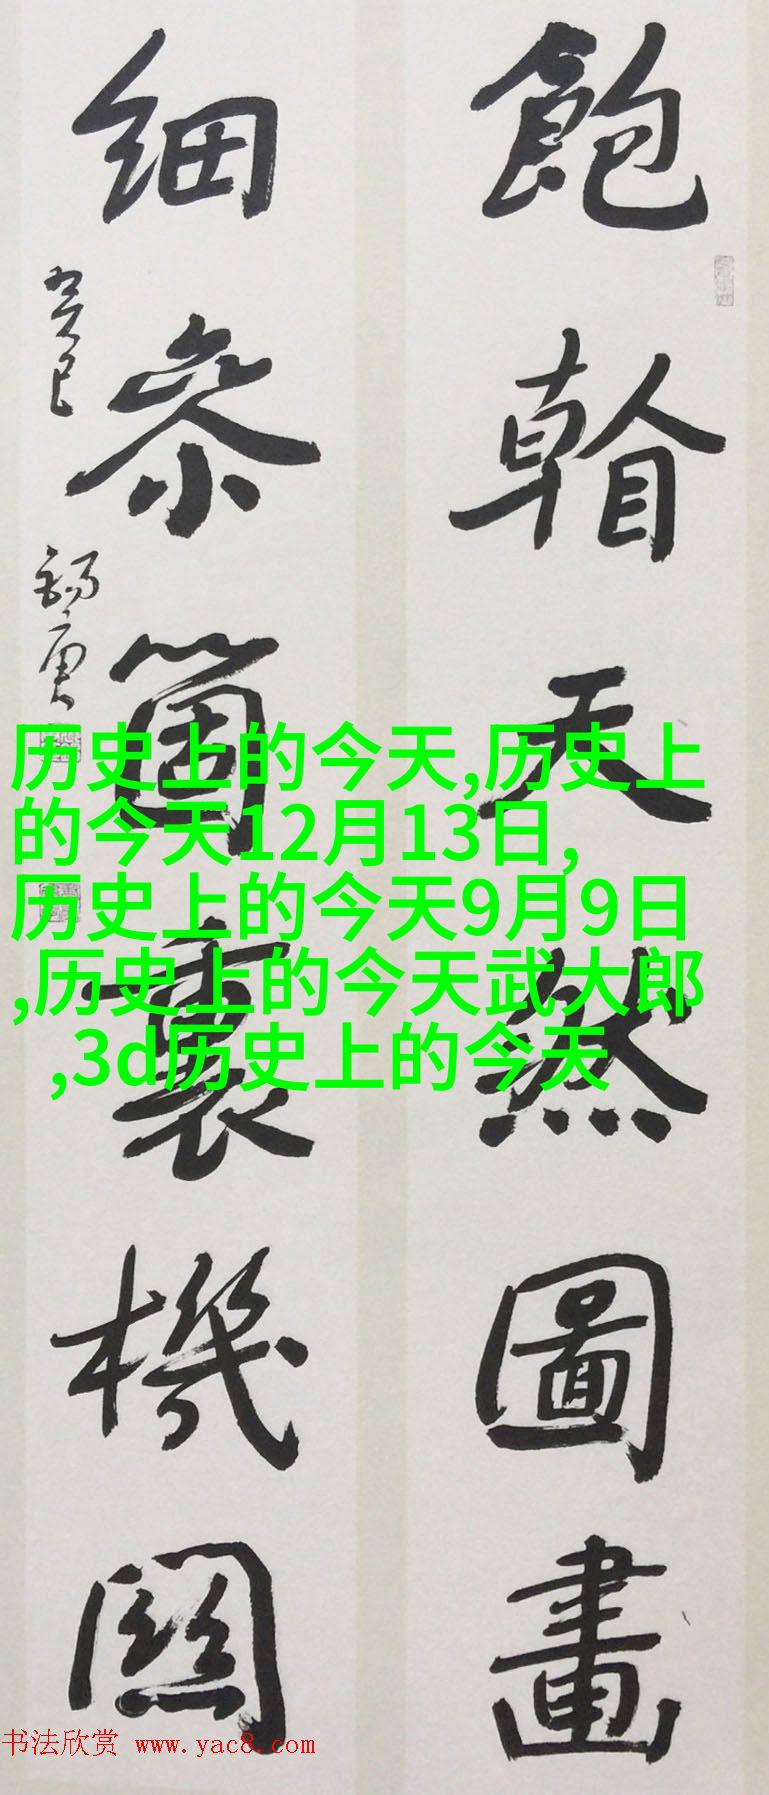 飽天然圖畫
細參箇裏機關
癸巳
历史上的今天,历史上
的今天12月13日,
历史上的今天9月9日
,历史上的今天武大郎
,3d历史上的今天
书法欣赏 www.yac8.com